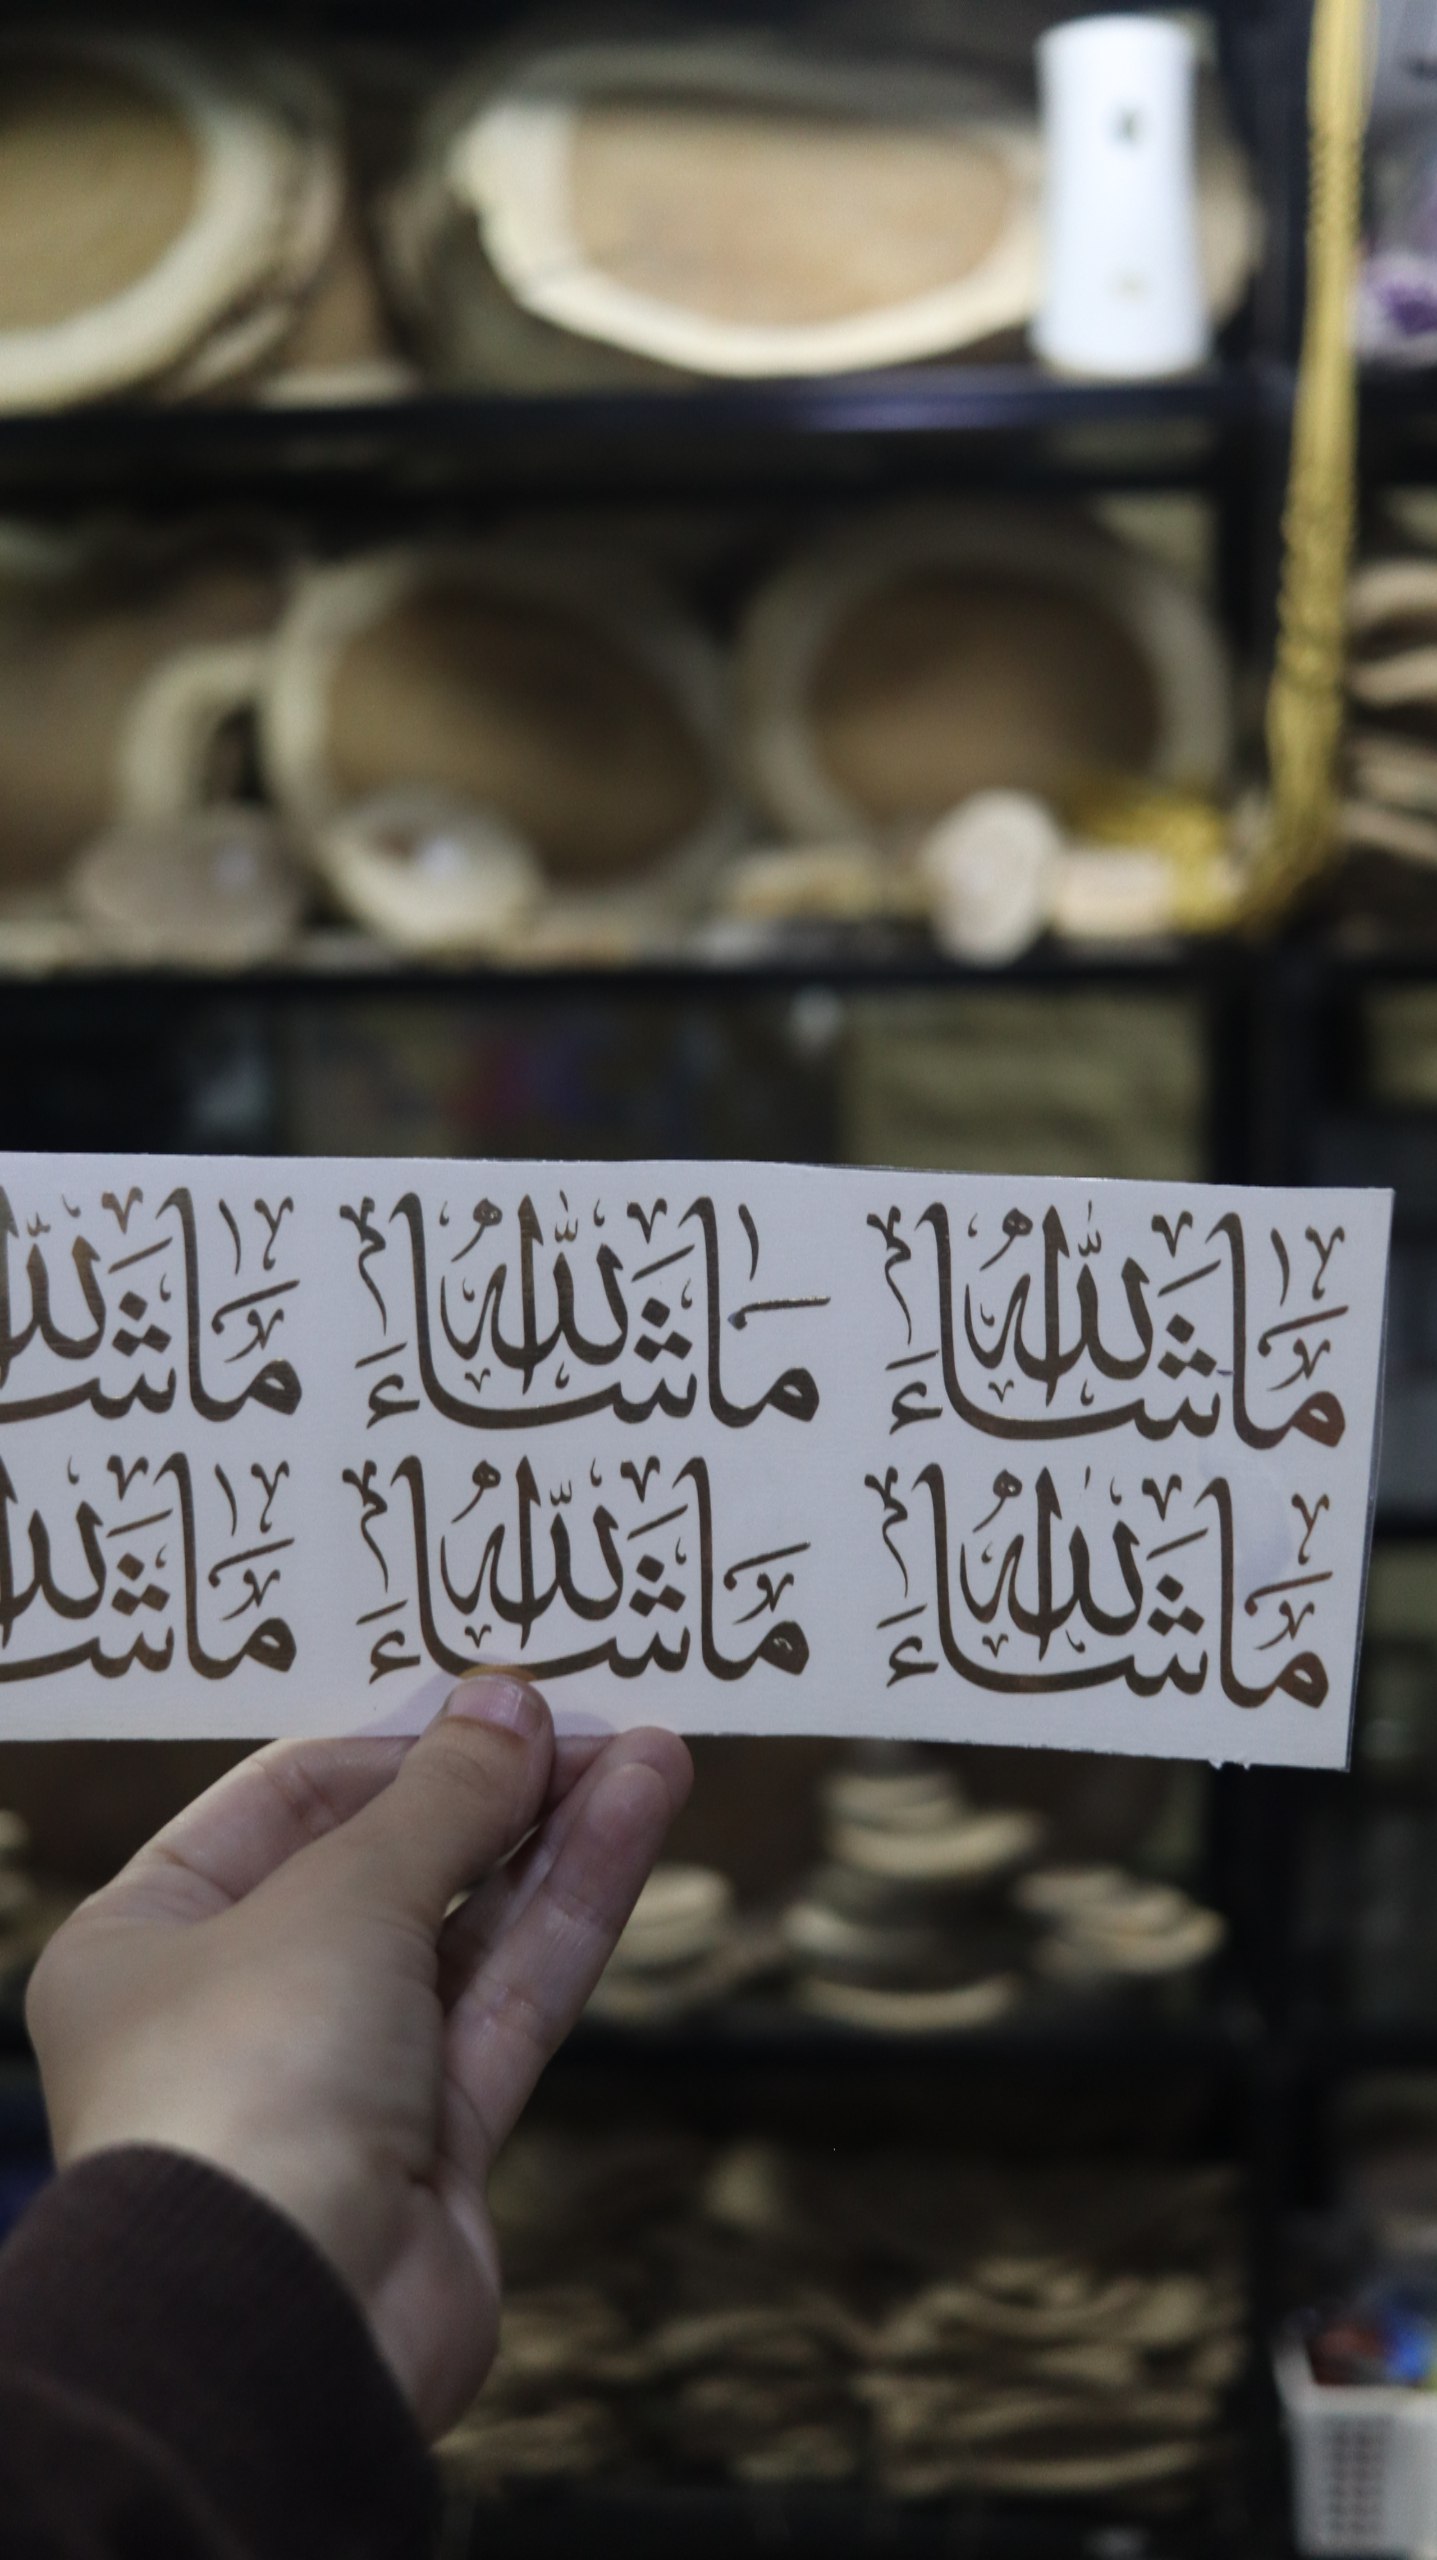 مَا شَاءَ اللّٰهُ مَا شَاءَ اللّٰهُ مَا شَاءَ اللّٰهُ
مَا شَاءَ اللّٰهُ مَا شَاءَ اللّٰهُ مَا شَاءَ اللّٰهُ